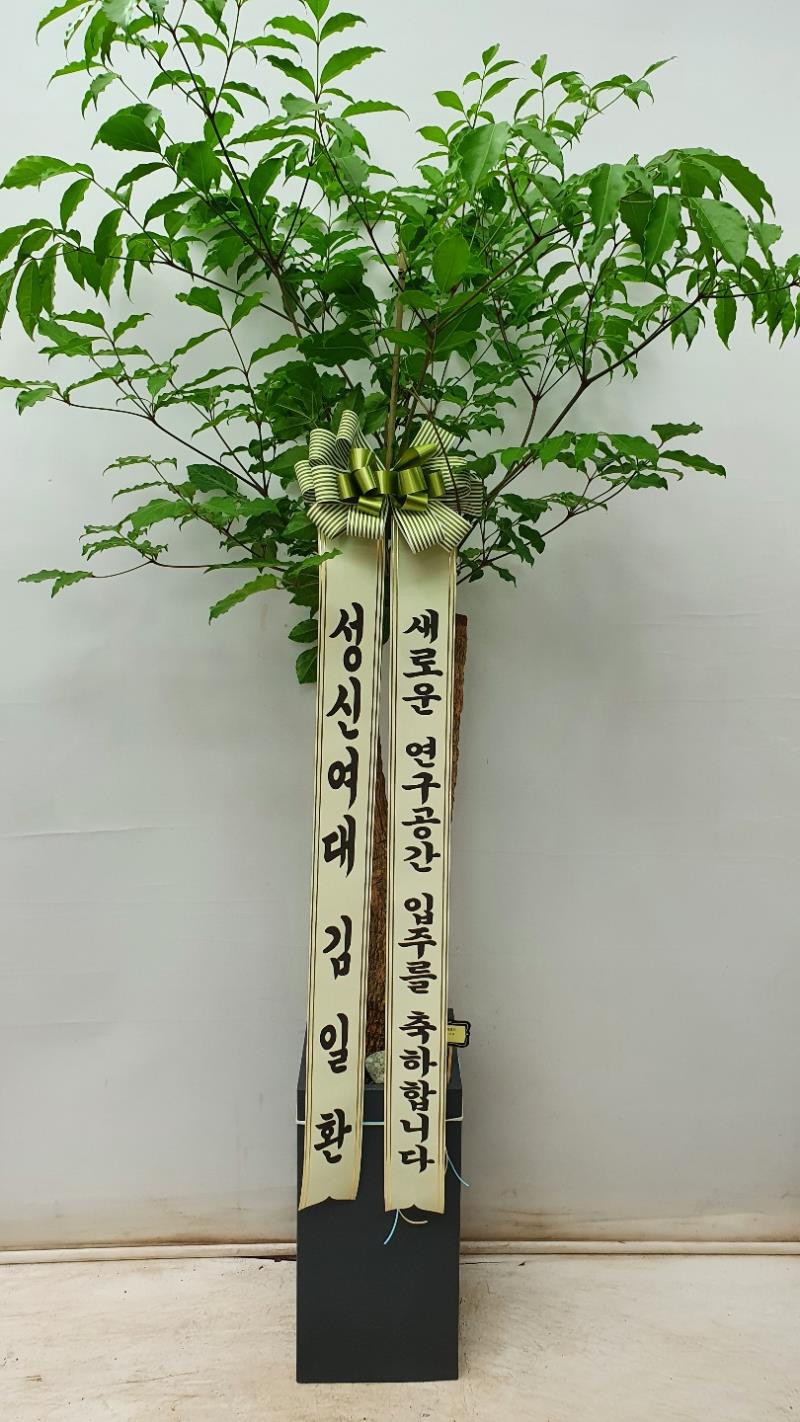 성신여대 김일환
새로운 연구공간 입주를 축하합니다